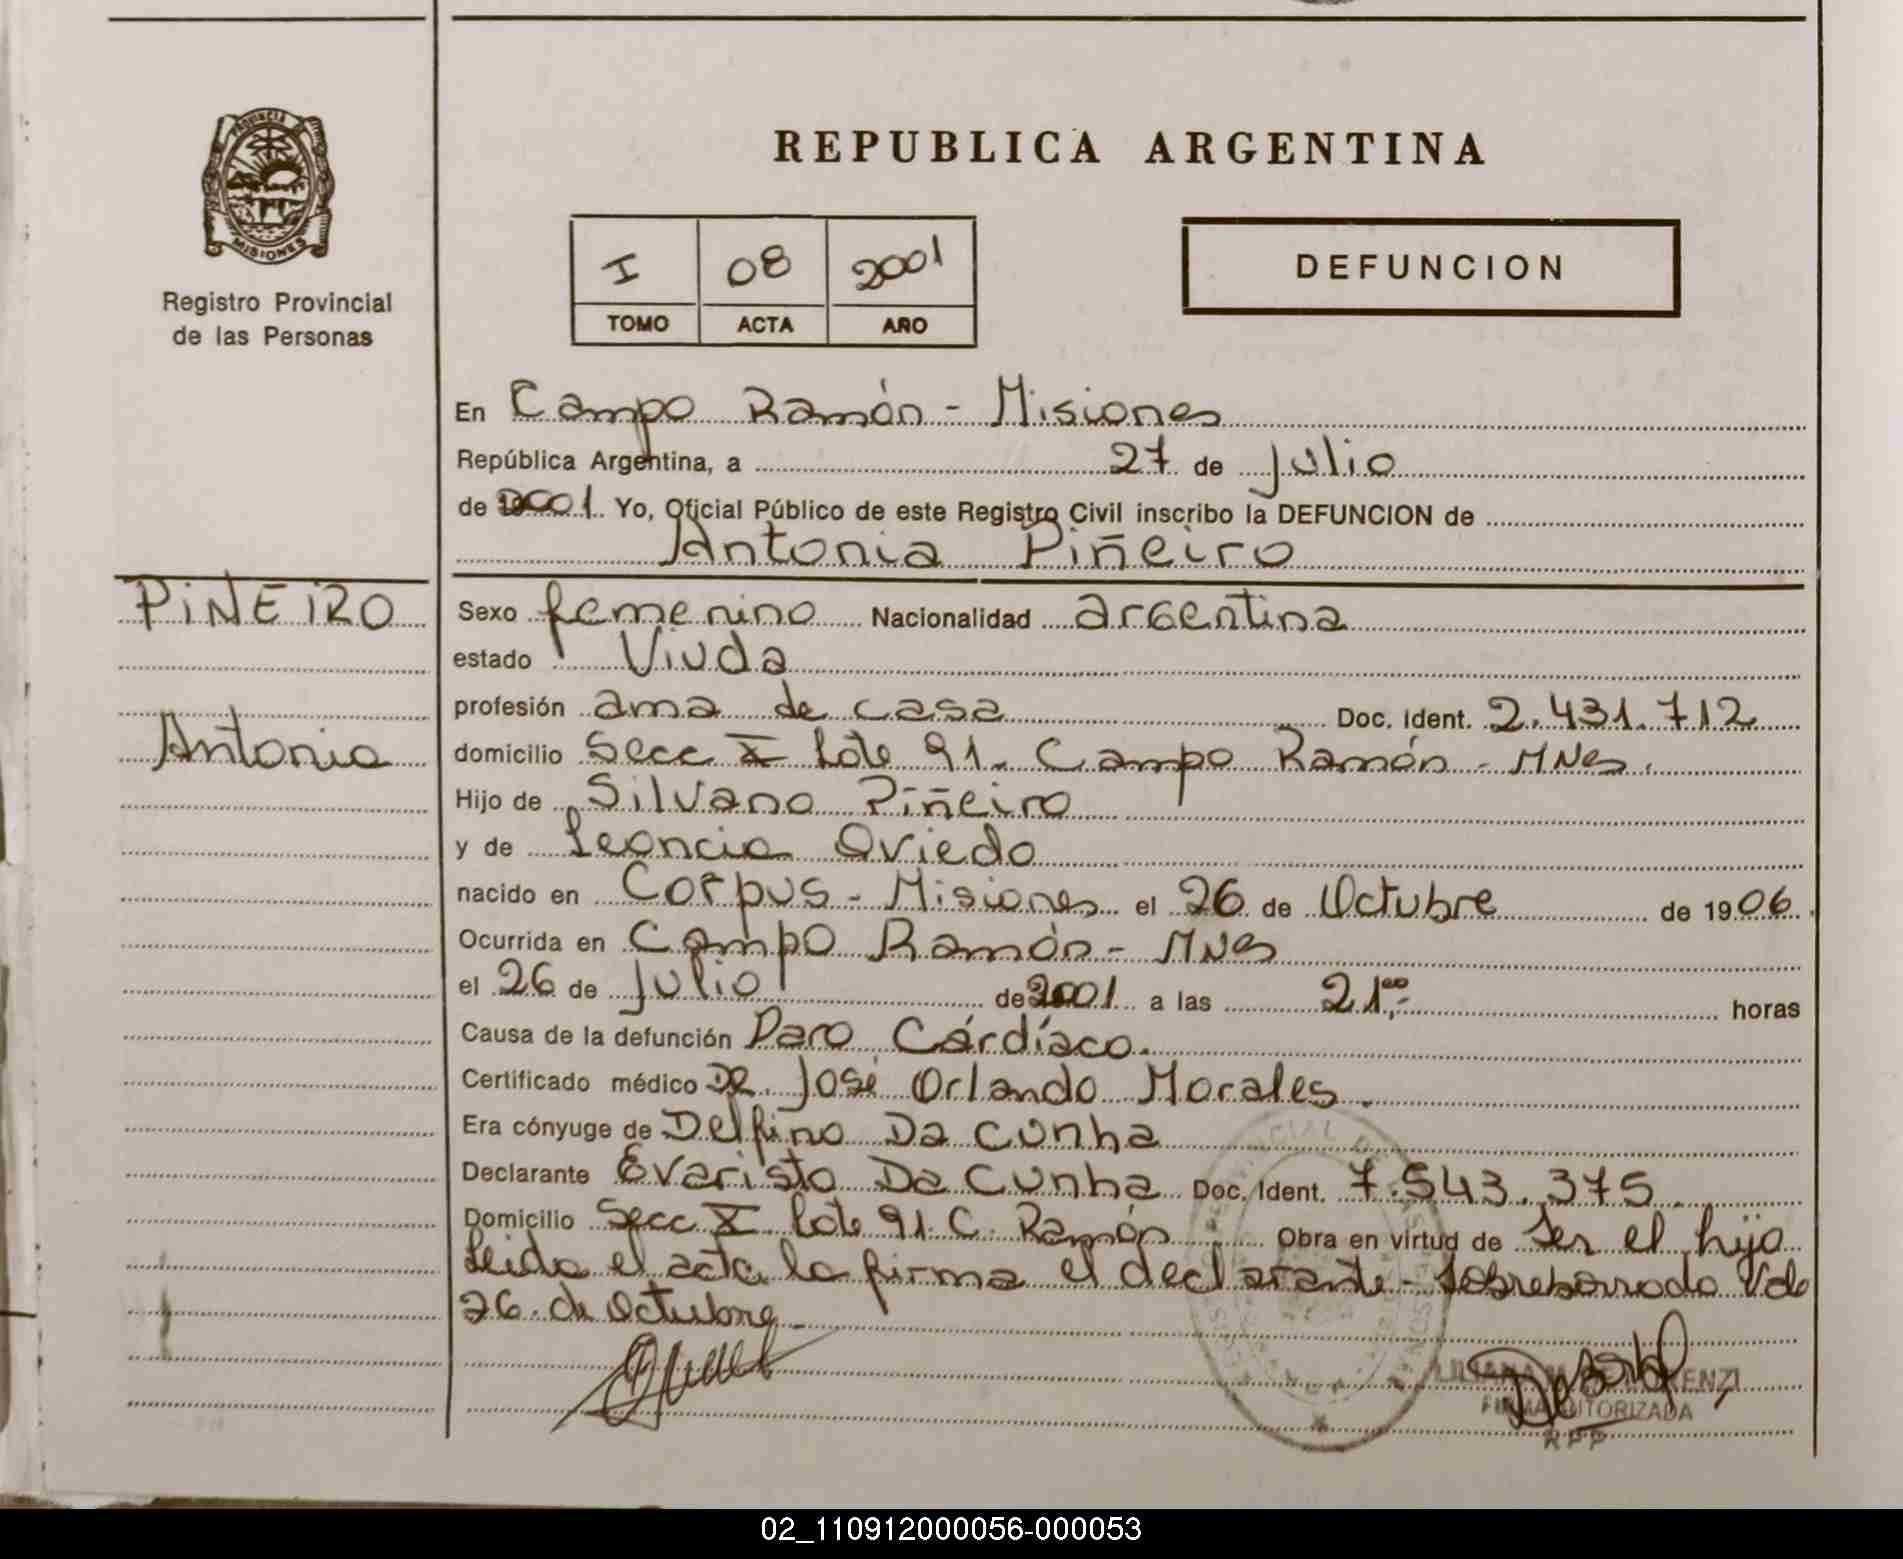 REPUBLICA ARGENTINA
PROVINCIA
MISIONES
Registro Provincial
de las Personas
I 08 2001
TOMO ACTA AÑO
DEFUNCION
En Campo Ramón - Misiones
República Argentina, a 27 de Julio
de 2001. Yo, Oficial Público de este Registro Civil inscribo la DEFUNCION de
Antonia Piñeiro
PiÑEiRO
Antonia
Sexo femenino Nacionalidad argentina
estado Viuda
profesión ama de casa Doc. Ident. 2.431.712
domicilio Secc X Lote 91. Campo Ramón - MNes.
Hijo de Silvano Piñeiro
y de Leoncia Oviedo
nacido en Corpus - Misiones el 26 de Octubre de 1906.
Ocurrida en Campo Ramón - MNes
el 26 de Julio de 2001 a las 21:00 horas
Causa de la defunción Paro Cárdíaco.
Certificado médico DR. José Orlando Morales.
Era cónyuge de Delfino Da Cunha
Declarante Evaristo Da Cunha Doc. Ident. 7.543.375.
Domicilio Secc X Lote 91. C. Ramón Obra en virtud de Ser el hijo
Leida el acta la firma el declarante - Sobreborrado Vale
26. de Octubre.
FIRMA AUTORIZADA
RPP
02_110912000056-000053